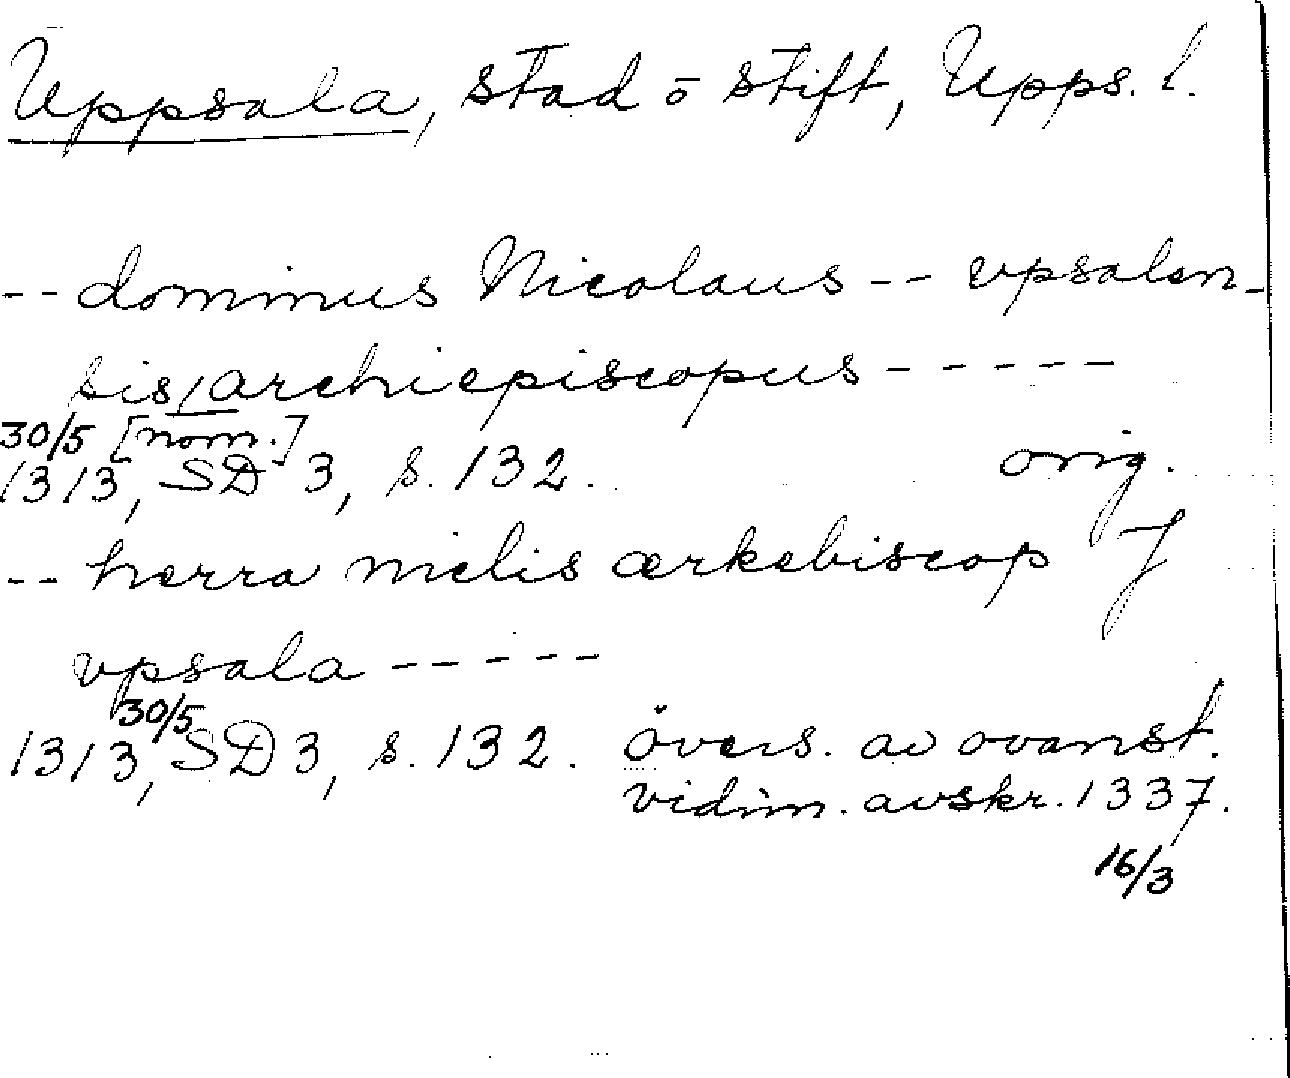 Uppsala, stad o stift, Upps. l.
-- dominus Nicolaus -- vpsalen-
sis archiepiscopus -----
30/5 [nom.]
1313, SD 3, s. 132. orig.
-- herra niclis ærkebiscop J
vpsala -----
30/5
1313, SD 3, s. 132. övers. av ovanst.
vidim. avskr. 1337.
16/3